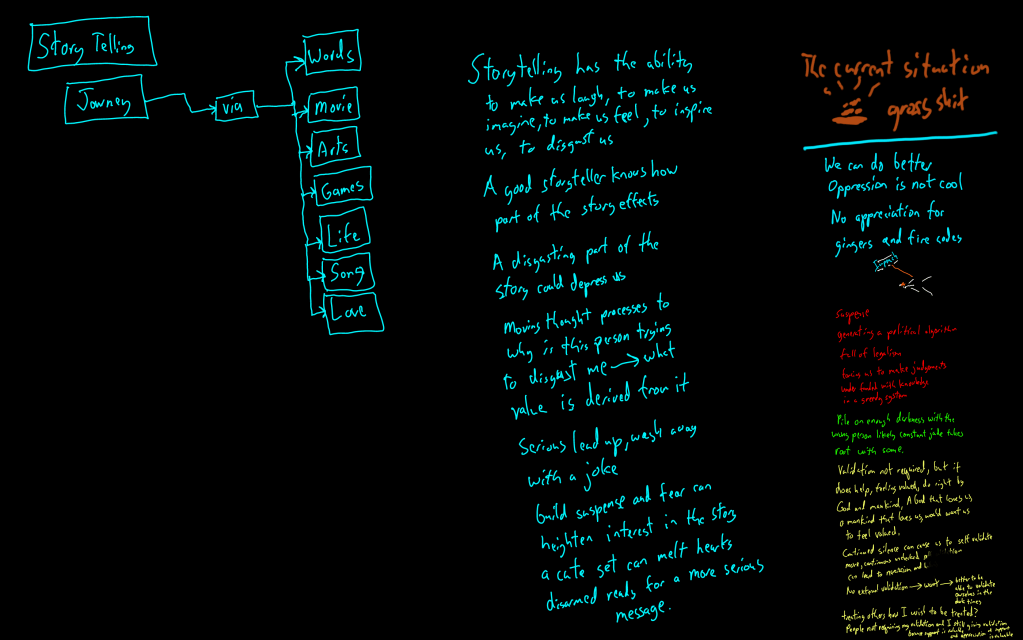 Story Telling
Journey
via
Words
Movie
Arts
Games
Life
Song
Love
Storytelling has the ability
to make us laugh, to make us
imagine, to make us feel, to inspire
us, to disgust us
A good storyteller knows how
part of the story effects
A disgusting part of the
story could depress us
Moving thought processes to
why is this person trying
to disgust me → what
value is derived from it
Serious lead up, wash away
with a joke
build suspense and fear can
heighten interest in the story
a cute set can melt hearts
disarmed ready for a more serious
message.
The current situation
gross shit
We can do better
Oppression is not cool
No appreciation for
gingers and fire codes
Suspense
generating a political algorithm
full of legalism
forcing us to make judgements
with knowledge
in a speedy system
Pile on enough darkness with the
wrong person likely constant jade takes
root with some.
Validation not required, but it
does help, feeling valued, do right by
God and mankind, A God that loves us
a mankind that loves us, would want us
to feel valued.
Continued silence can cause us to self validate
more, continuous unchecked
can lead to
No external validation → work → better to be
able to validate
ourselves in the
dark times
treating others how I wish to be treated?
People not requiring my validation and I still giving validation